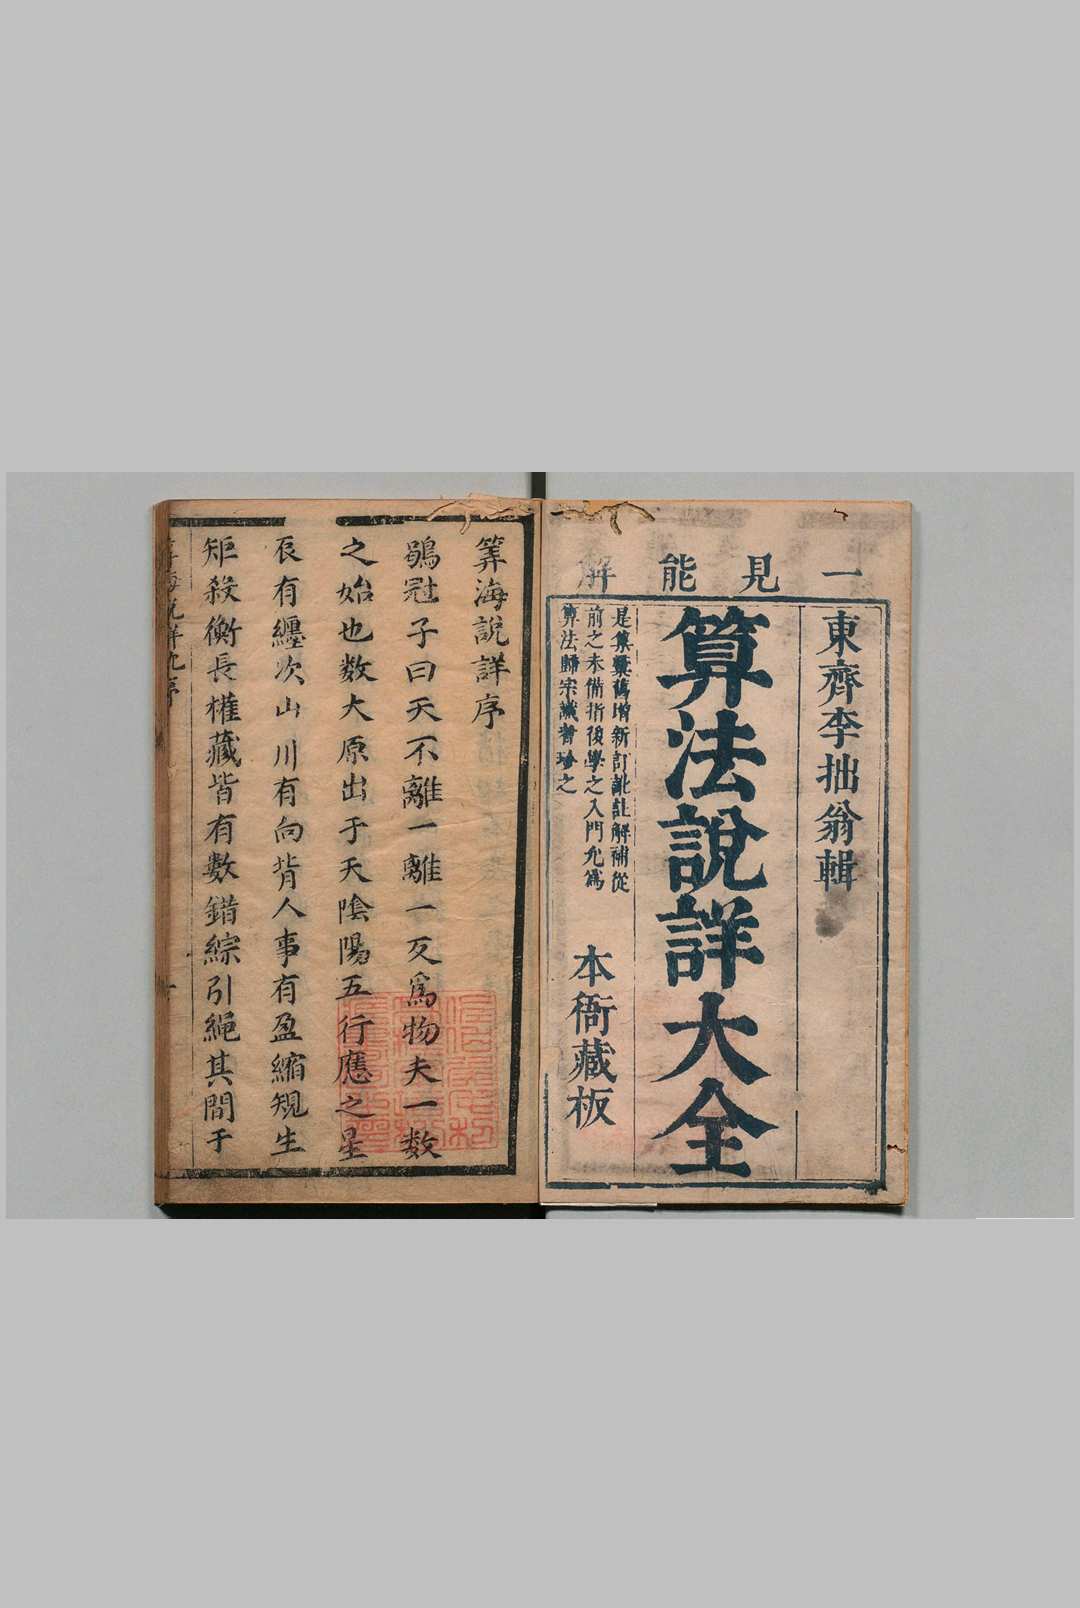 一見能解
東齊李拙翁輯
算法說詳大全
是集彙舊增新訂訛註解補從
前之未備指後學之入門允爲
算法歸宗識者珍之
本衙藏板
筭海說詳序
鶡冠子曰天不離一離一反爲物夫一數
之始也數大原出于天陰陽五行應之星
辰有纏次山川有向背人事有盈縮規生
矩殺衡長權藏皆有數錯綜引繩其間于